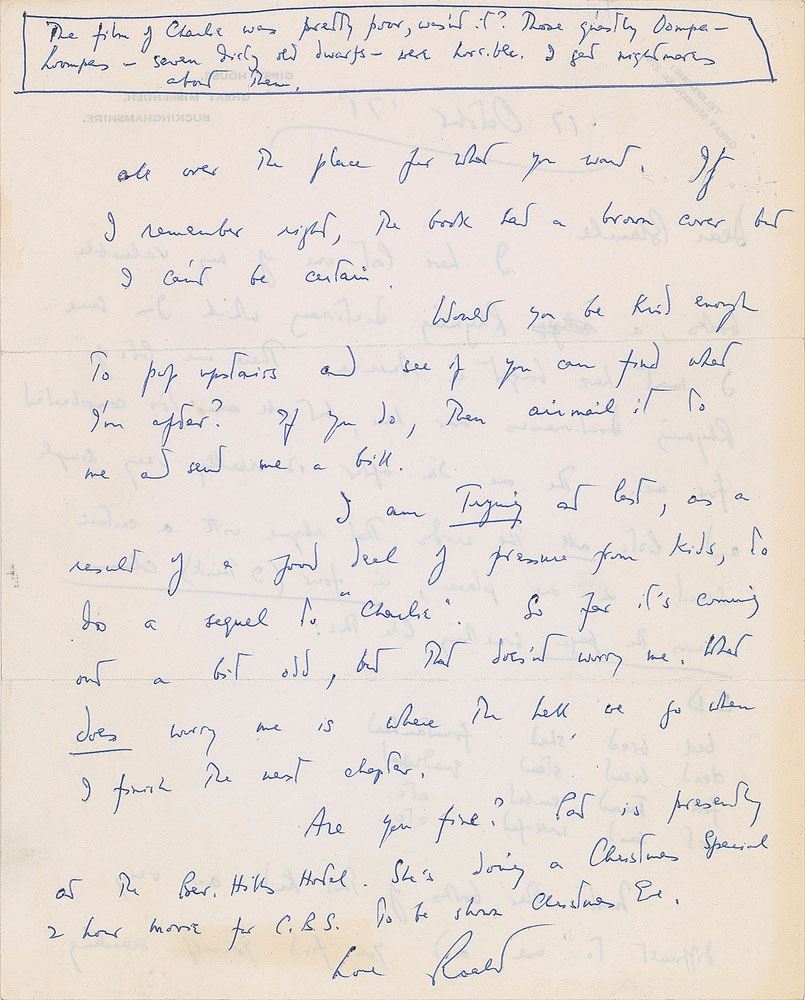 The film of Charlie was pretty poor, wasn't it? Those ghastly Oompa-
Loompas – seven dirty old dwarfs – were horrible. I get nightmares
about them.
all over the place for what you want. If
I remember right, the book had a brown cover but
I can't be certain.
Would you be kind enough
to pop upstairs and see if you can find what
I'm after? If you do, then airmail it to
me and send me a bill.
I am Trying at last, as a
result of a good deal of pressure from kids, to
do a sequel to "Charlie". So far it's coming
out a bit odd, but that doesn't worry me. What
does worry me is where the hell we go when
I finish the next chapter.
Are you fine? Pat is presently
at the Bev. Hills Hotel. She's doing a Christmas Special
2 hour movie for C.B.S. To be shown Christmas Eve.
Love Roald
GIPSY HOUSE,
GREAT MISSENDEN,
BUCKINGHAMSHIRE.